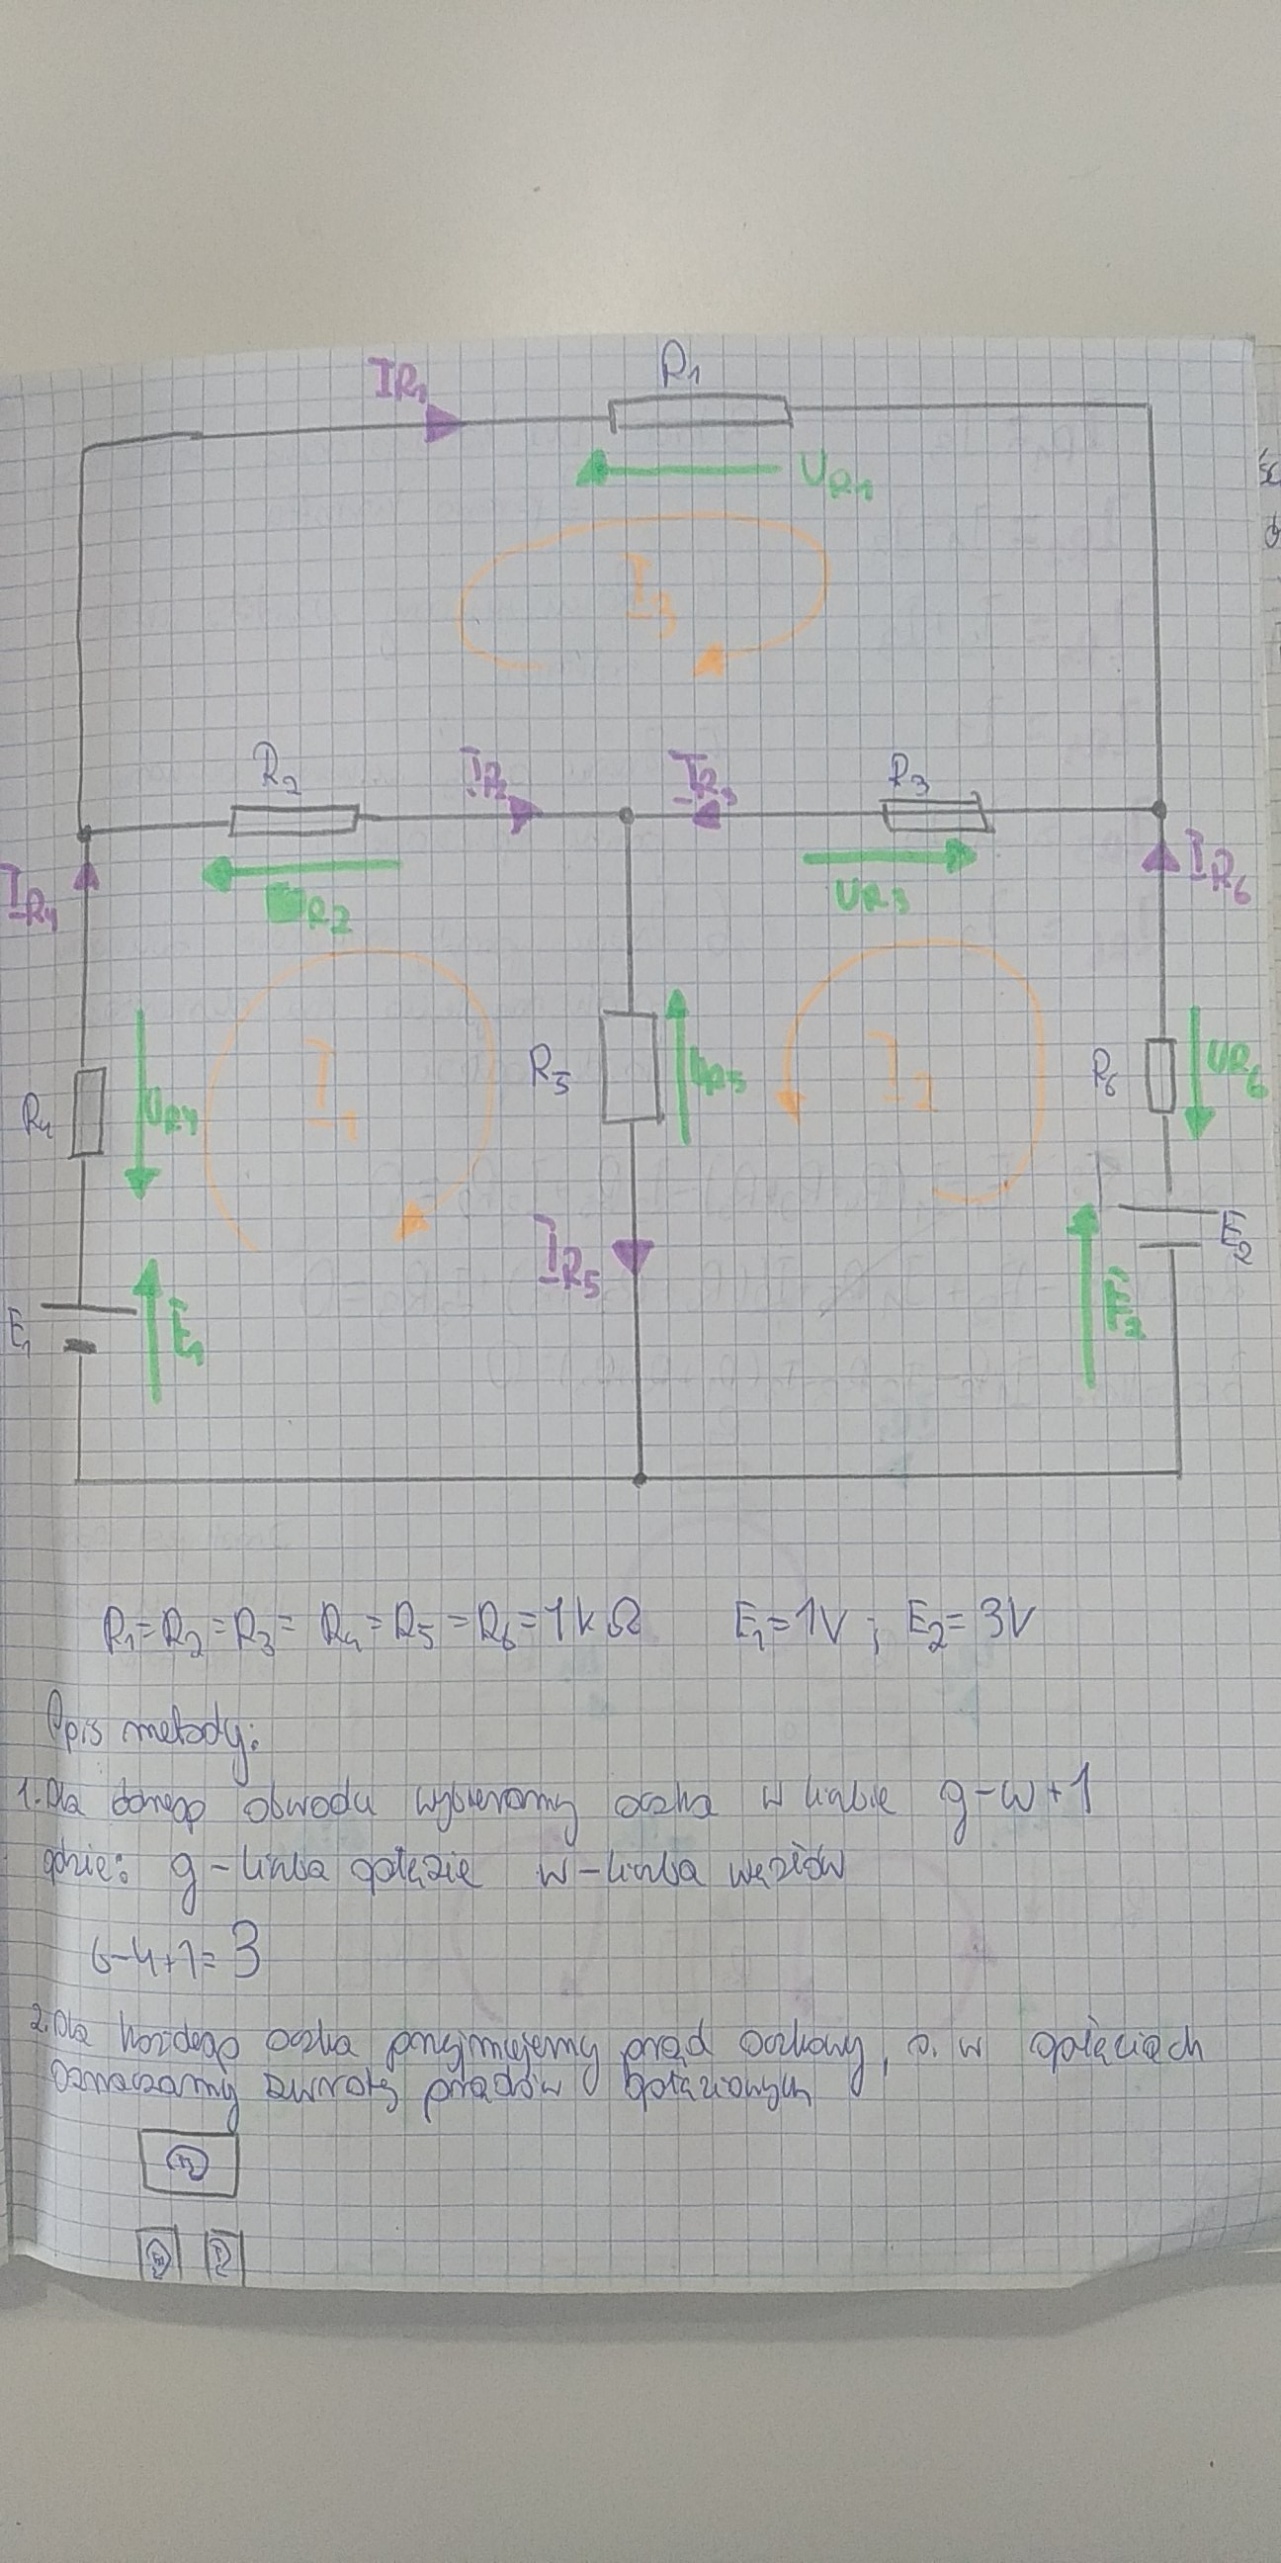 IR1
R1
UR1
I3
R2
IR2
IR3
R3
IR4
UR2
UR3
IR6
R4
UR4
I1
R5
UR5
I2
R6
UR6
IR5
E1
E1
E2
E2
R1=R2=R3= R4=R5=R6=1kΩ E1=1V ; E2=3V
Opis metody:
1. Dla danego obwodu wybieramy oczka w liczbie g-w+1
gdzie: g-liczba gałęzie w-liczba węzłów
6-4+1=3
2. Dla każdego oczka przyjmujemy prąd oczkowy, a w gałęziach
oznaczamy zwroty prądów gałęziowych